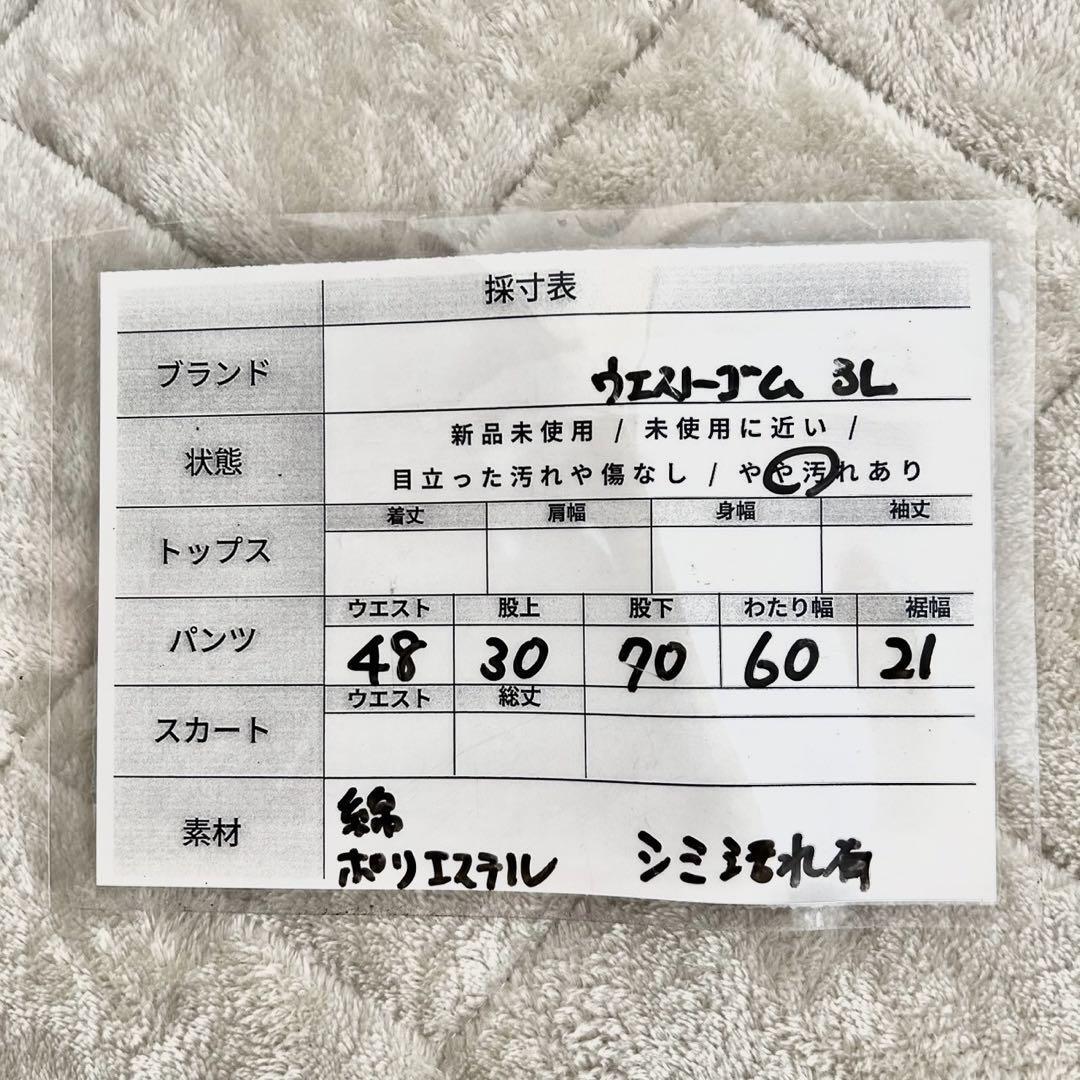 採寸表
ブランド
ウエストゴム 3L
状態
新品未使用 / 未使用に近い /
目立った汚れや傷なし / やや汚れあり
トップス
着丈 肩幅 身幅 袖丈
パンツ
ウエスト 股上 股下 わたり幅 裾幅
48 30 70 60 21
スカート
ウエスト 総丈
素材
綿
ポリエステル シミ汚れ有